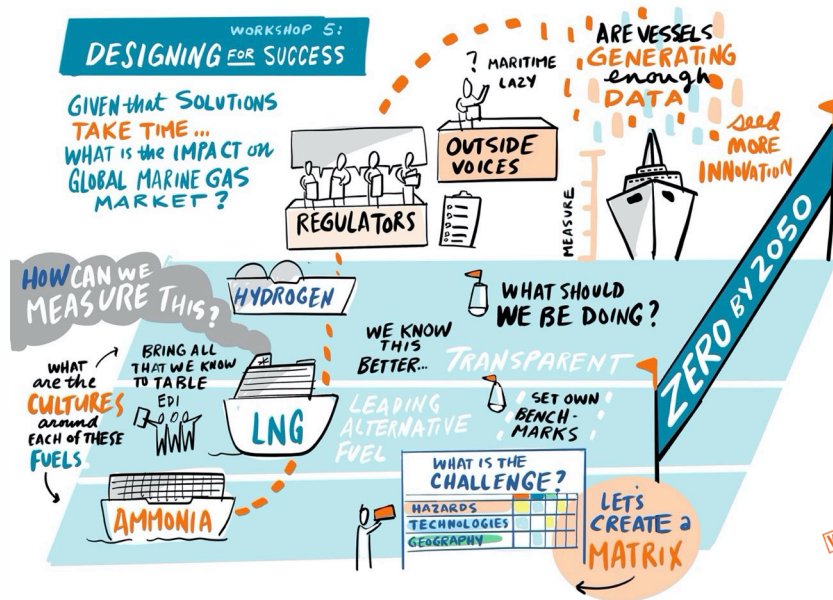 WORKSHOP 5:
DESIGNING FOR SUCCESS
GIVEN that SOLUTIONS
TAKE TIME...
WHAT is the IMPACT on
GLOBAL MARINE GAS
MARKET?
REGULATORS
? MARITIME
LAZY
OUTSIDE
VOICES
ARE VESSELS
GENERATING
enough
DATA
seed
MORE
INNOVATION
MEASURE
ZERO BY 2050
HOW CAN WE
MEASURE THIS?
HYDROGEN
WHAT SHOULD
WE BE DOING?
WE KNOW
THIS
BETTER...
TRANSPARENT
WHAT
are the
CULTURES
around
EACH OF THESE
FUELS
BRING ALL
THAT WE KNOW
TO TABLE
EDI
LNG
LEADING
ALTERNATIVE
FUEL
SET OWN
BENCH-
MARKS
AMMONIA
WHAT IS THE
CHALLENGE?
HAZARDS
TECHNOLOGIES
GEOGRAPHY
LET'S
CREATE a
MATRIX